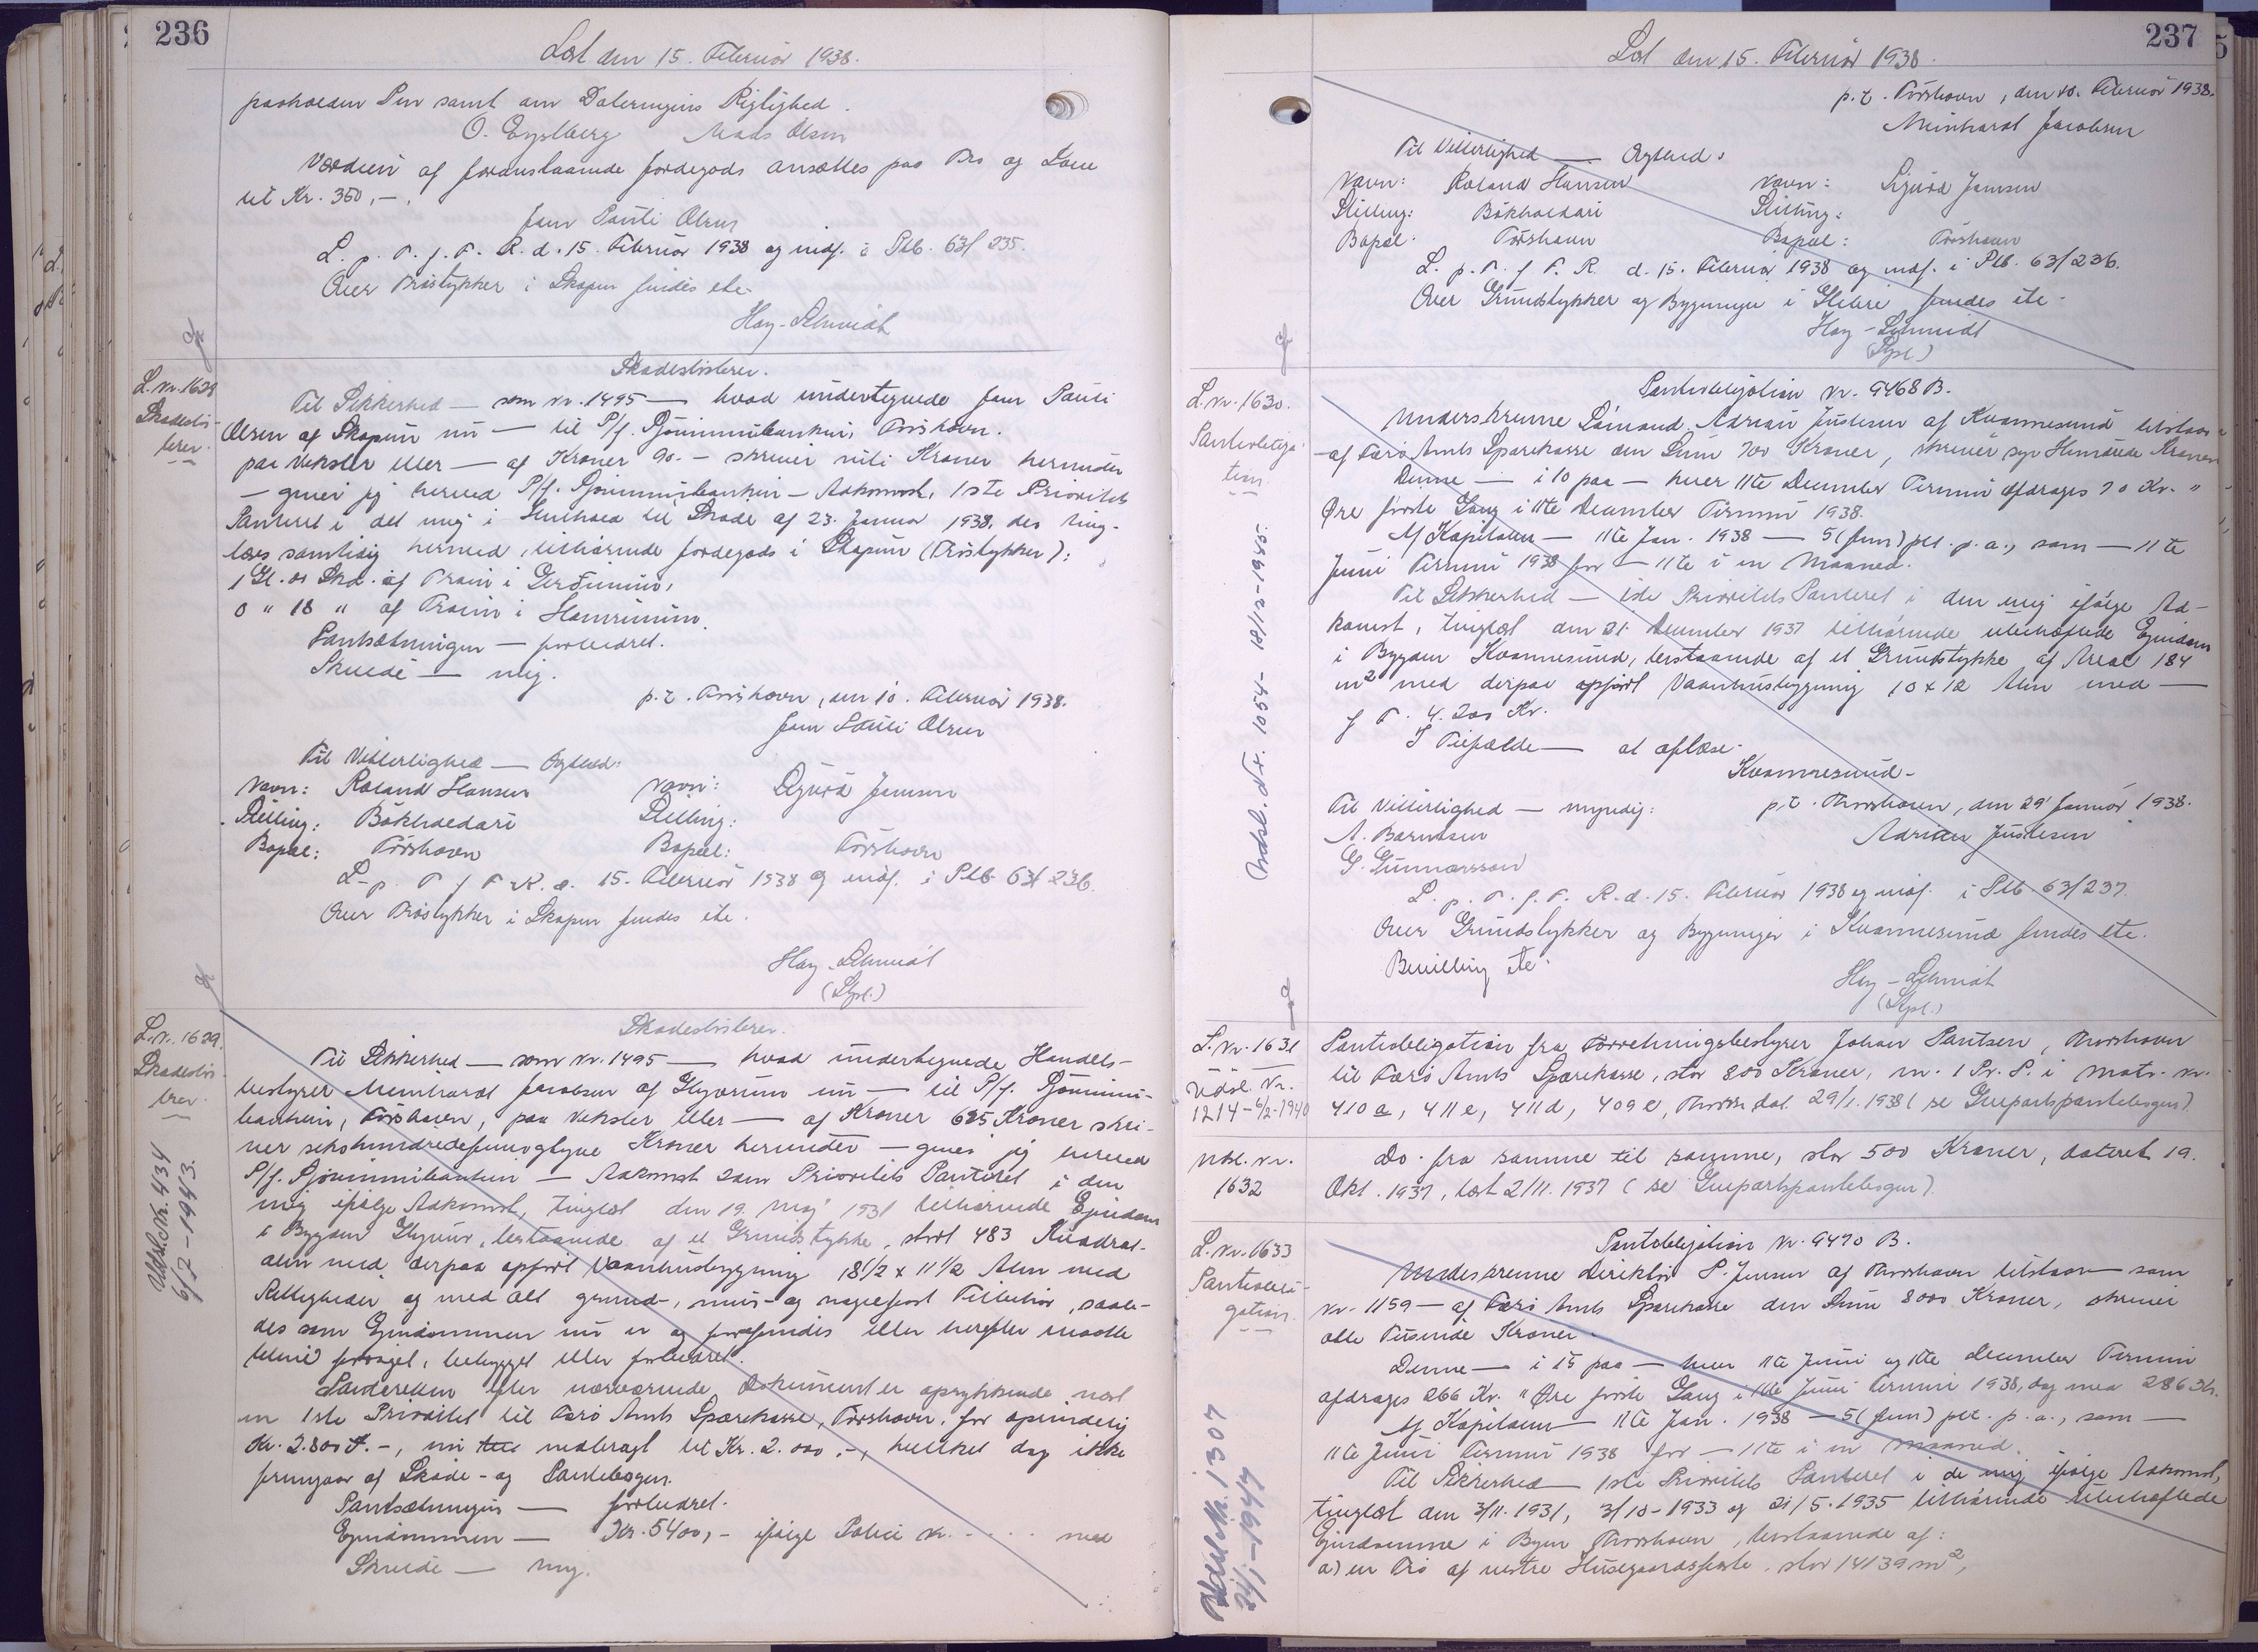 236
Læst den 15. Februar 1938.
paaholden Pen samt om Dateringens Rigtighed.
O. Mads Olsen
Værdien af foranstaaende Jordegods ansættes paa Tro og Love
til Kr. 350,-.
Jens Pauli Olsen
L. p. T. f. F. R. d. 15. Februar 1938 og indf. i Ptb. 63/235.
Over Trøstykker i Skopun findes ete.
Hoy-Schmidt
L. Nr. 1628
Skadesløs-
brev.
Skadesløsbrev.
Til Sikkerhed — som Nr. 1495 — hvad undertegnede Jens Pauli
Olsen af Skopun nu — til P/f. Sjóvinnubankin, Tórshavn.
paa Veksler eller — af Kroner 90.- skriver niti Kroner herunder
— giver jeg herved P/f. Sjóvinnubankin — Adkomst, 1ste Prioritets
Panteret i det mig i Henhold til Skøde af 23. Januar 1938, der ting-
læses samtidig hermed, tilhørende Jordegods i Skopun (Trøstykker):
1 Gl. 01 Skd. af Trøin i Gerðinum,
0 " 18 " af Trøin i Hamrinum.
Pantsætningen — forbedret.
Skulde — mig.
p. t. Tórshavn, den 10. Februar 1938.
Jens Pauli Olsen
Til Vitterlighed — Myndighed:
Navn: Roland Hansen Navn: Sigurd Jensen
Stilling: Bókhaldari Stilling:
Bopæl: Tórshavn Bopæl: Tórshavn
L. p. T. f. F. R. d. 15. Februar 1938 og indf. i Ptb. 63/236.
Over Trøstykker i Skopun findes ete.
Hoy-Schmidt
(Stpl.)
L. Nr. 1629.
Skadesløs-
brev.
Udsl. Nr. 434
6/7-1943.
Skadesløsbrev.
Til Sikkerhed — som Nr. 1495 — hvad undertegnede Handels-
bestyrer Meinhardt Jacobsen af Glyvrum nu — til P/f. Sjóvinnu-
bankin, Tórshavn, paa Veksler eller — af Kroner 625 Kroner skri-
ver sekshundredefemogtyve Kroner herunder — giver jeg herved
P/f. Sjóvinnubankin — Adkomst 2den Prioritets Panteret i den
mig ifølge Adkomst, tinglæst den 19. Maj 1931 tilhørende Ejendom
i Bygden Glyvur, bestaaende af et Grundstykke, stort 483 Kvadrat-
alen med derpaa opført Vaaningsbygning 18 1/2 x 11 1/2 Alen med
Rettigheder og med alt grund-, mur- og nagelfast Tilbehør, saale-
des som Ejendommen nu er og forefindes eller herefter maatte
blive forøget, bebygget eller forbedret.
Panteretten efter nærværende Dokument er oprykkende næst
en 1ste Prioritet til Færø Amts Sparekasse, Tórshavn, for oprindelig
Kr. 2.800.-, nu nedbragt til Kr. 2.000.-, hvilket dog ikke
fremgaar af Skøde- og Pantebogen.
Pantsætningen — forbedret.
Ejendommen — Kr. 5400,- ifølge Police Nr. . . . . med
Skulde — mig.
237
Læst den 15. Februar 1938.
p. t. Tórshavn, den 10. Februar 1938.
Meinhardt Jacobsen
Til Vitterlighed — Myndighed:
Navn: Roland Hansen Navn: Sigurd Jensen
Stilling: Bókhaldari Stilling:
Bopæl: Tórshavn Bopæl: Tórshavn
L. p. T. f. F. R. d. 15. Februar 1938 og indf. i Ptb. 63/236.
Over Grundstykker og Bygninger i findes ete.
Hoy-Schmidt
(Stpl.)
L. Nr. 1630.
Pantobliga-
tion
Udsl. Nr. 1054 - 18/12-1945.
Pantobligation Nr. 9468 B.
Underskrevne Adrian Justesen af Kvannesund tilstaar
- af Færø Amts Sparekasse den Sum 700 Kroner, skriver syv Hundrede Kroner
Denne — i 10 paa — hver 11te December Termin afdrages 70 Kr. "
Øre første Gang i 11te December Termin 1938.
Af Kapitalen — 11te Jan. 1938 — 5 (fem) pct. p. a., som — 11te
Juni Termin 1938 for — 11te i en Maaned.
Til Sikkerhed — 1ste Prioritets Panteret i den mig ifølge Ad-
komst, tinglæst den 21. December 1937 tilhørende ubehæftede Ejendom
i Bygden Kvannesund, bestaaende af et Grundstykke af Areal 184
m² med derpaa opført Vaanhusbygning 10 x 12 Alen med —
f T. 4.200 Kr.
I Tilfælde — at aflæse.
Kvannesund -
Til Vitterlighed — myndig: p. t. Thorshavn, den 29' Januar 1938.
A. Barnesen Adrian Justesen
G. Gunnarsson
L. p. T. f. F. R. d. 15. Februar 1938 og indf. i Ptb. 63/237.
Over Grundstykker og Bygninger i Kvannesund findes ete.
Bevilling ete.
Hoy-Schmidt
(Stpl.)
L. Nr. 1631
Udsl. Nr.
1214 - 6/2-1940
Pantobligation fra Forretningsbestyrer Johan Poulsen, Thorshavn
til Færø Amts Sparekasse, stor 800 Kroner, m. 1 Pr. P. i Matr. Nr.
410a, 411e, 411d, 409e, Thorsh. dat. 29/1. 1938 (se Genpartspantebogen)
Udsl. Nr.
1632
Do. fra samme til samme, stor 500 Kroner, dateret 19.
Okt. 1937, læst 2/11. 1937 (se Genpartspantebogen).
L. Nr. 1633
Pantobli-
gation.
Udsl. Nr. 1307
24/1-1944
Pantobligation Nr. 9470 B.
Underskrevne Direktør P. Jensen af Thorshavn tilstaar som
Nr. 1159 — af Færø Amts Sparekasse den Sum 8000 Kroner, skriver
otte Tusinde Kroner.
Denne — i 15 paa — hver 11te Juni og 11te December Termin
afdrages 266 Kr. " Øre første Gang i 11te Juni Termin 1938, dog med 286 Kr.
Af Kapitalen — 11te Jan. 1938 — 5 (fem) pct. p. a., som —
11te Juni Termin 1938 for — 11te i en Maaned.
Til Sikkerhed — 1ste Prioritets Panteret i de mig ifølge Adkomst,
tinglæst den 3/11. 1931, 3/10-1933 og 21/5. 1935 tilhørende ubehæftede
Ejendomme i Byen Thorshavn, bestaaende af:
a) en Trø af nestre Husegaardsfæste, stor 14139 m²,